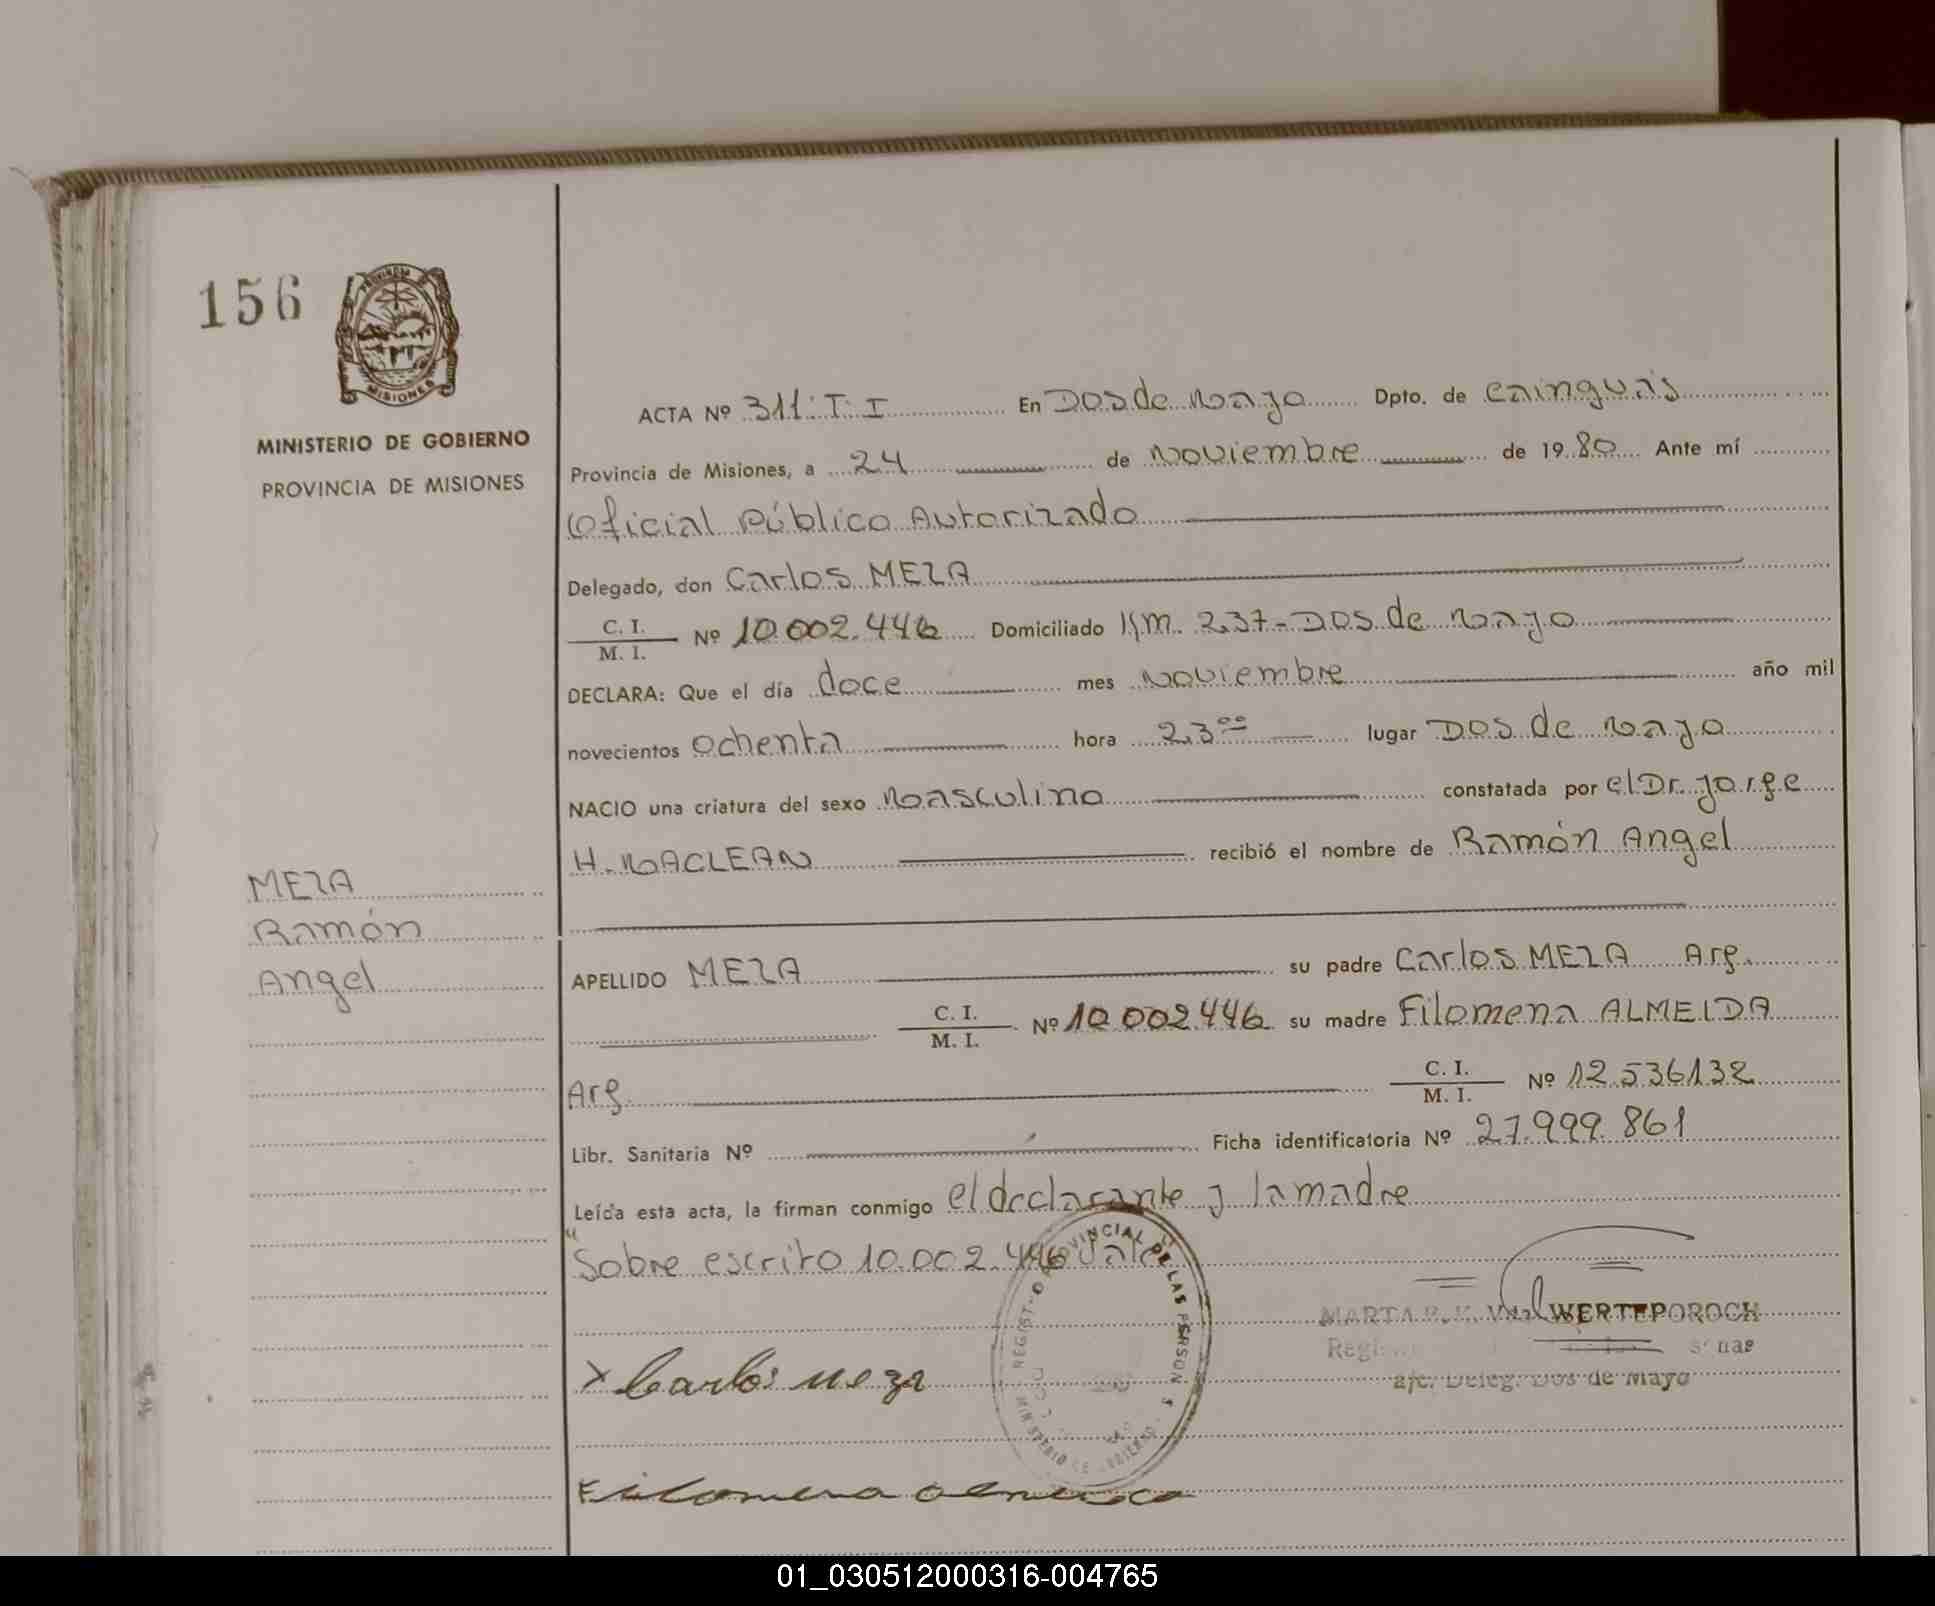 156
PROVINCIA DE
MISIONES
MINISTERIO DE GOBIERNO
PROVINCIA DE MISIONES
ACTA Nº 311. T. I En Dos de Mayo Dpto. de Cainguás
Provincia de Misiones, a 24 de Noviembre de 1980 Ante mí
Oficial Público Autorizado
Delegado, don Carlos MEZA
C. I.
M. I. Nº 10.002.446 Domiciliado Km. 237 - Dos de Mayo
DECLARA: Que el día doce mes Noviembre año mil
novecientos ochenta hora 23ºº lugar Dos de Mayo
NACIO una criatura del sexo Masculino constatada por el Dr. Jorge
H. MACLEAN recibió el nombre de Ramón Angel
MEZA
Ramón
Angel
APELLIDO MEZA su padre Carlos MEZA Arg.
C. I.
M. I. Nº 10.002.446 su madre Filomena ALMEIDA
Arg. C. I.
M. I. Nº 12.536.132
Libr. Sanitaria Nº Ficha identificatoria Nº 27.999.861
Leída esta acta, la firman conmigo el declarante y la madre
"Sobre escrito 10.002.446 Vale"
REGISTRO PROVINCIAL DE LAS PERSONAS
MINISTERIO DE GOBIERNO
MARTA WERTEPOROCH
a/c. Deleg. Dos de Mayo
x Carlos Meza
Filomena almeida
01_030512000316-004765